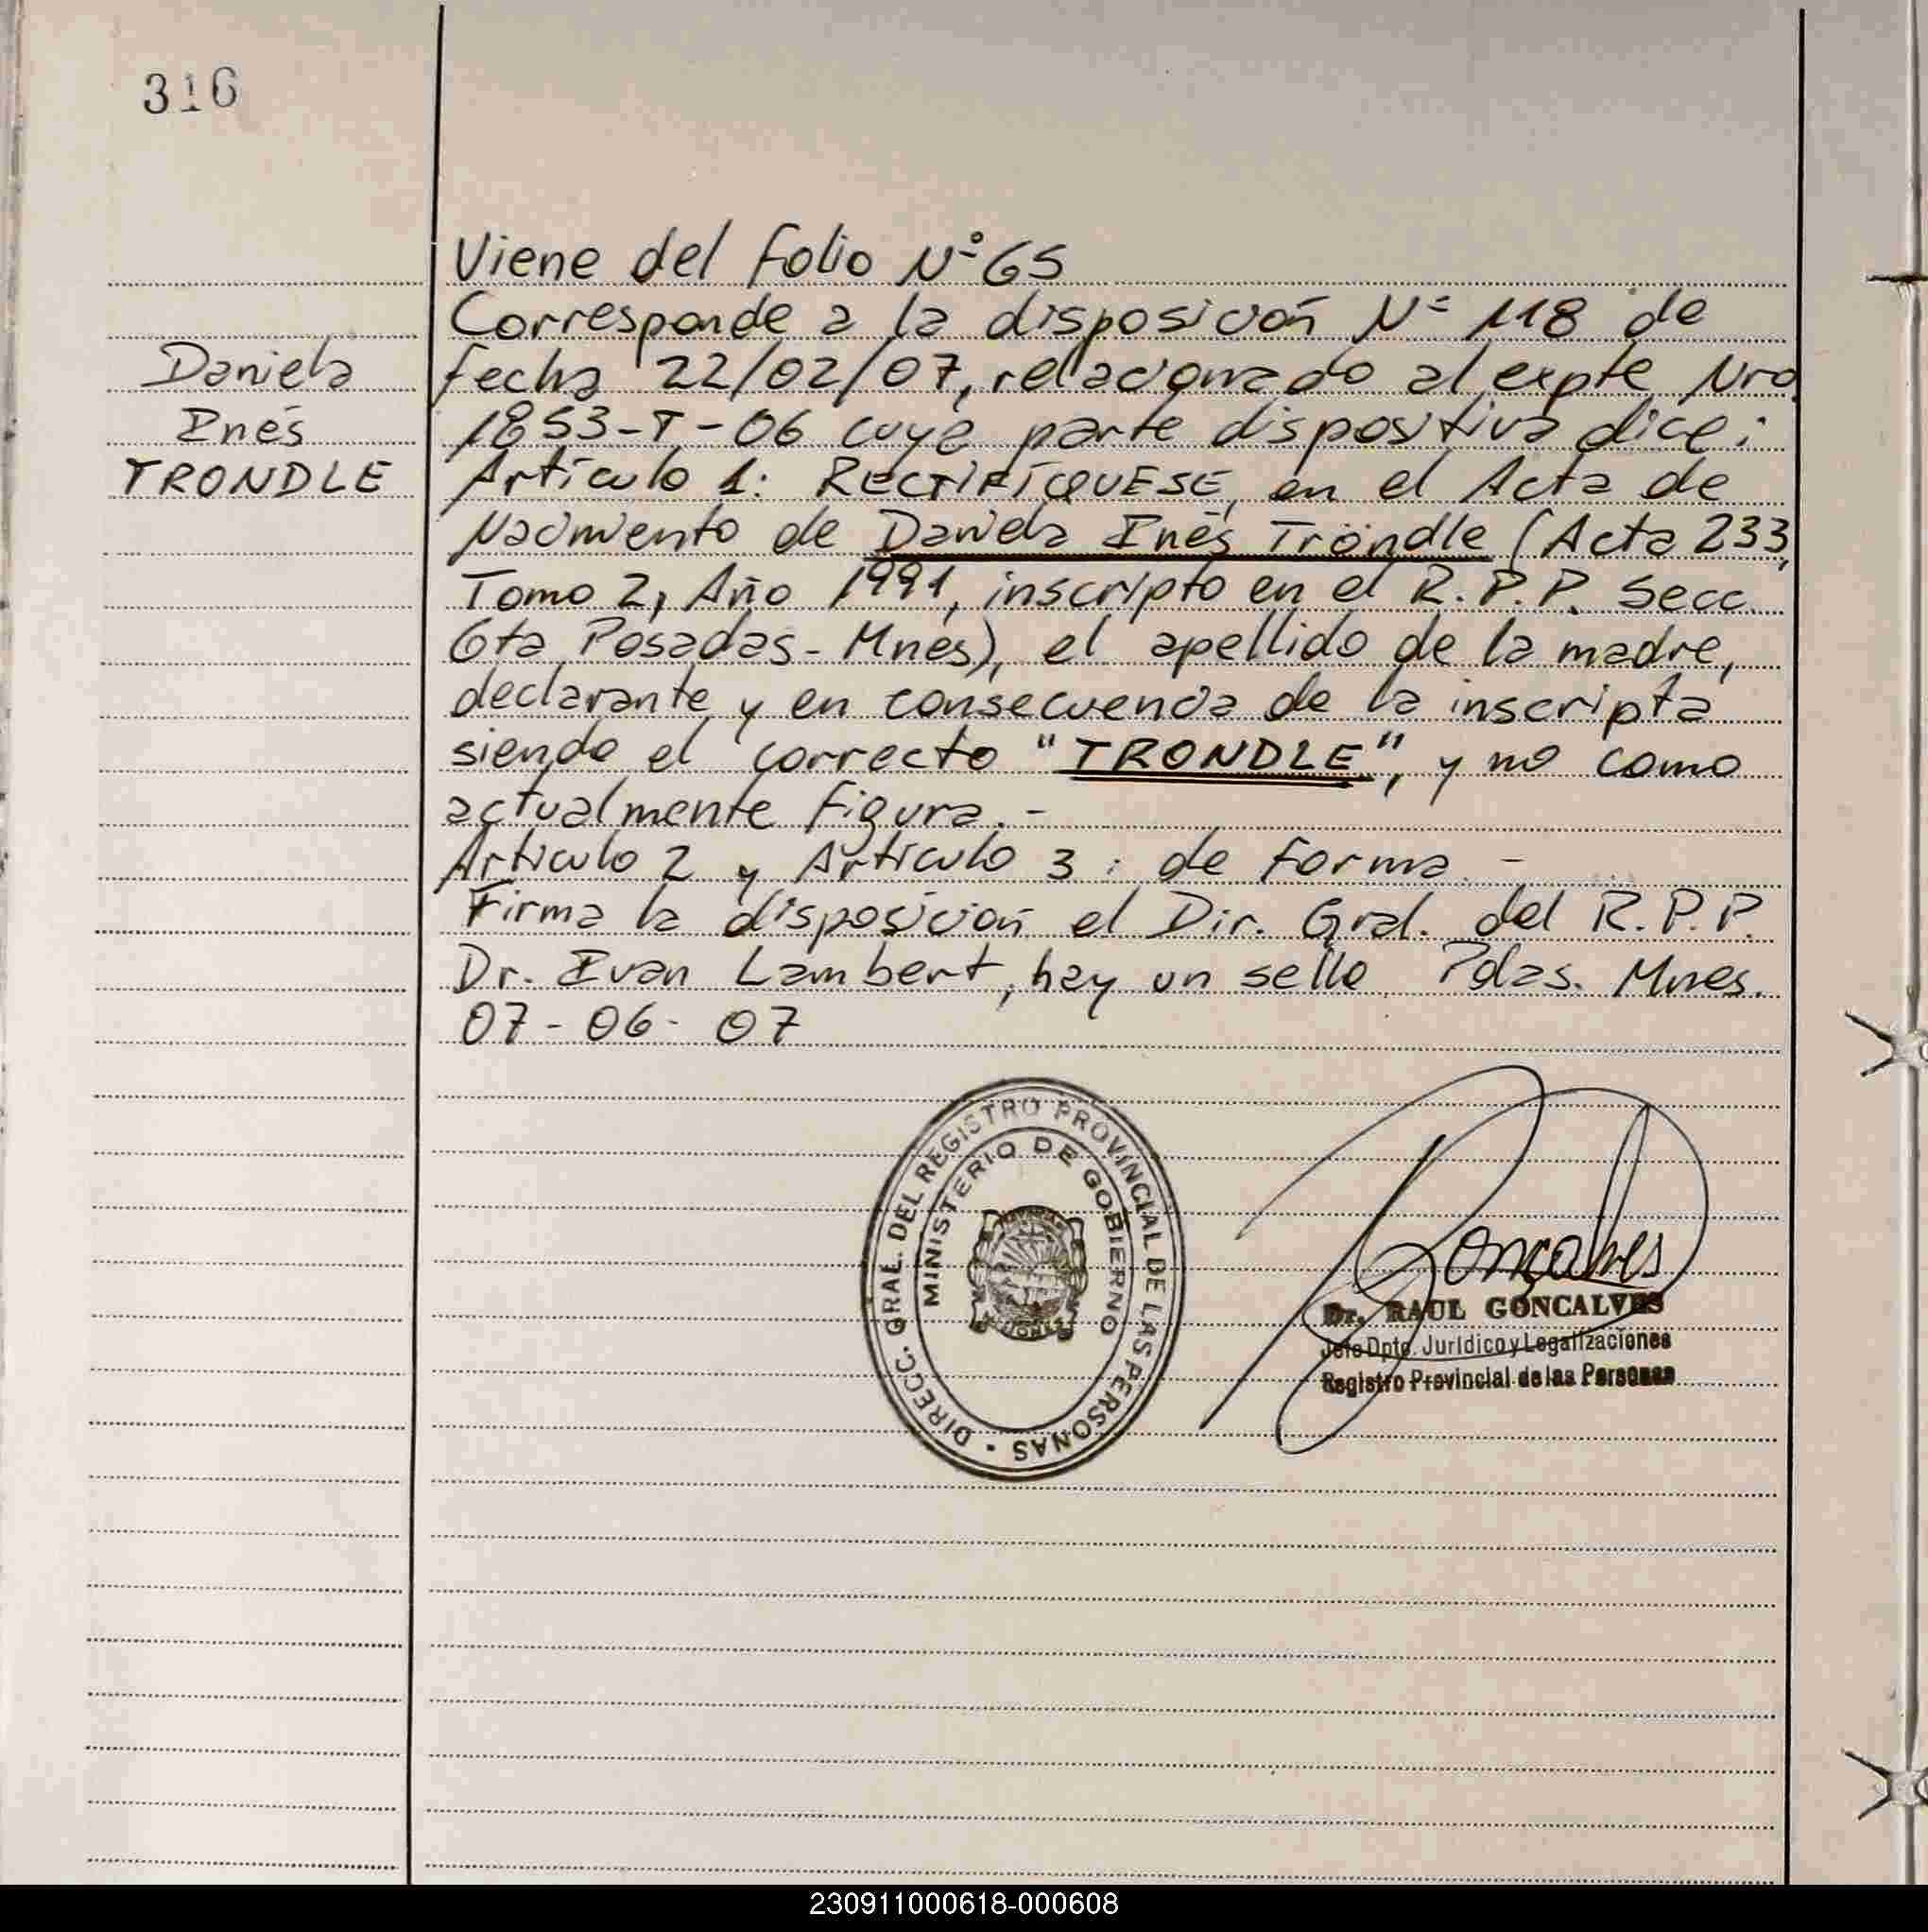 316
Viene del folio N° 65
Corresponde a la disposición N° 118 de
fecha 22/02/07, relacionado al expte Nro
1853-T-06 cuya parte dispositiva dice:
Daniela
Inés
TRONDLE
Artículo 1: RECTIFÍQUESE, en el Acta de
Nacimiento de Daniela Inés Tröndle (Acta 233,
Tomo 2, Año 1991, inscripto en el R.P.P. Secc.
6ta Posadas-Mnes), el apellido de la madre,
declarante y en consecuencia de la inscripta
siendo el correcto "TRONDLE", y no como
actualmente figura.-
Artículo 2 y Artículo 3: de forma.-
Firma la disposición el Dir. Gral. del R.P.P.
Dr. Ivan Lambert, hay un sello. Pdas. Mnes.
07-06-07
DIRECC. GRAL. DEL REGISTRO PROVINCIAL DE LAS PERSONAS
MINISTERIO DE GOBIERNO
MISIONES
Goncalves
Dr. RAUL GONCALVES
Jefe Dpto. Jurídico y Legalizaciones
Registro Provincial de las Personas
230911000618-000608